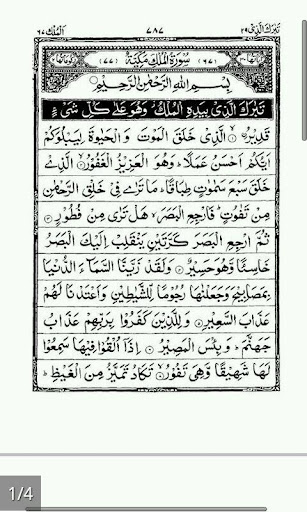 تَبٰرَكَ الَّذِىْ ٢٩
٧٨٧
اَلْمُلْك ٦٧
(٦٧) سُوْرَةُ الْمُلْكِ مَكِّيَّةٌ (٧٧)
بِسْمِ اللّٰهِ الرَّحْمٰنِ الرَّحِيْمِ
تَبٰرَكَ الَّذِىْ بِيَدِهِ الْمُلْكُ وَهُوَ عَلٰى كُلِّ شَىْءٍ
قَدِيْرُۨ ۙ الَّذِىْ خَلَقَ الْمَوْتَ وَالْحَيٰوةَ لِيَبْلُوَكُمْ
اَيُّكُمْ اَحْسَنُ عَمَلًا ؕ وَهُوَ الْعَزِيْزُ الْغَفُوْرُ ۙ الَّذِىْ
خَلَقَ سَبْعَ سَمٰوٰتٍ طِبَاقًا ؕ مَا تَرٰى فِىْ خَلْقِ الرَّحْمٰنِ
مِنْ تَفٰوُتٍ ؕ فَارْجِعِ الْبَصَرَ ۙ هَلْ تَرٰى مِنْ فُطُوْرٍ
ثُمَّ ارْجِعِ الْبَصَرَ كَرَّتَيْنِ يَنْقَلِبْ اِلَيْكَ الْبَصَرُ
خَاسِئًا وَّهُوَ حَسِيْرٌ وَلَقَدْ زَيَّنَّا السَّمَآءَ الدُّنْيَا
بِمَصَابِيْحَ وَجَعَلْنٰهَا رُجُوْمًا لِّلشَّيٰطِيْنِ وَاَعْتَدْنَا لَهُمْ
عَذَابَ السَّعِيْرِ وَلِلَّذِيْنَ كَفَرُوْا بِرَبِّهِمْ عَذَابُ
جَهَنَّمَ ؕ وَبِئْسَ الْمَصِيْرُ اِذَآ اُلْقُوْا فِيْهَا سَمِعُوْا
لَهَا شَهِيْقًا وَّهِىَ تَفُوْرُ ۙ تَكَادُ تَمَيَّزُ مِنَ الْغَيْظِ ؕ
1/4